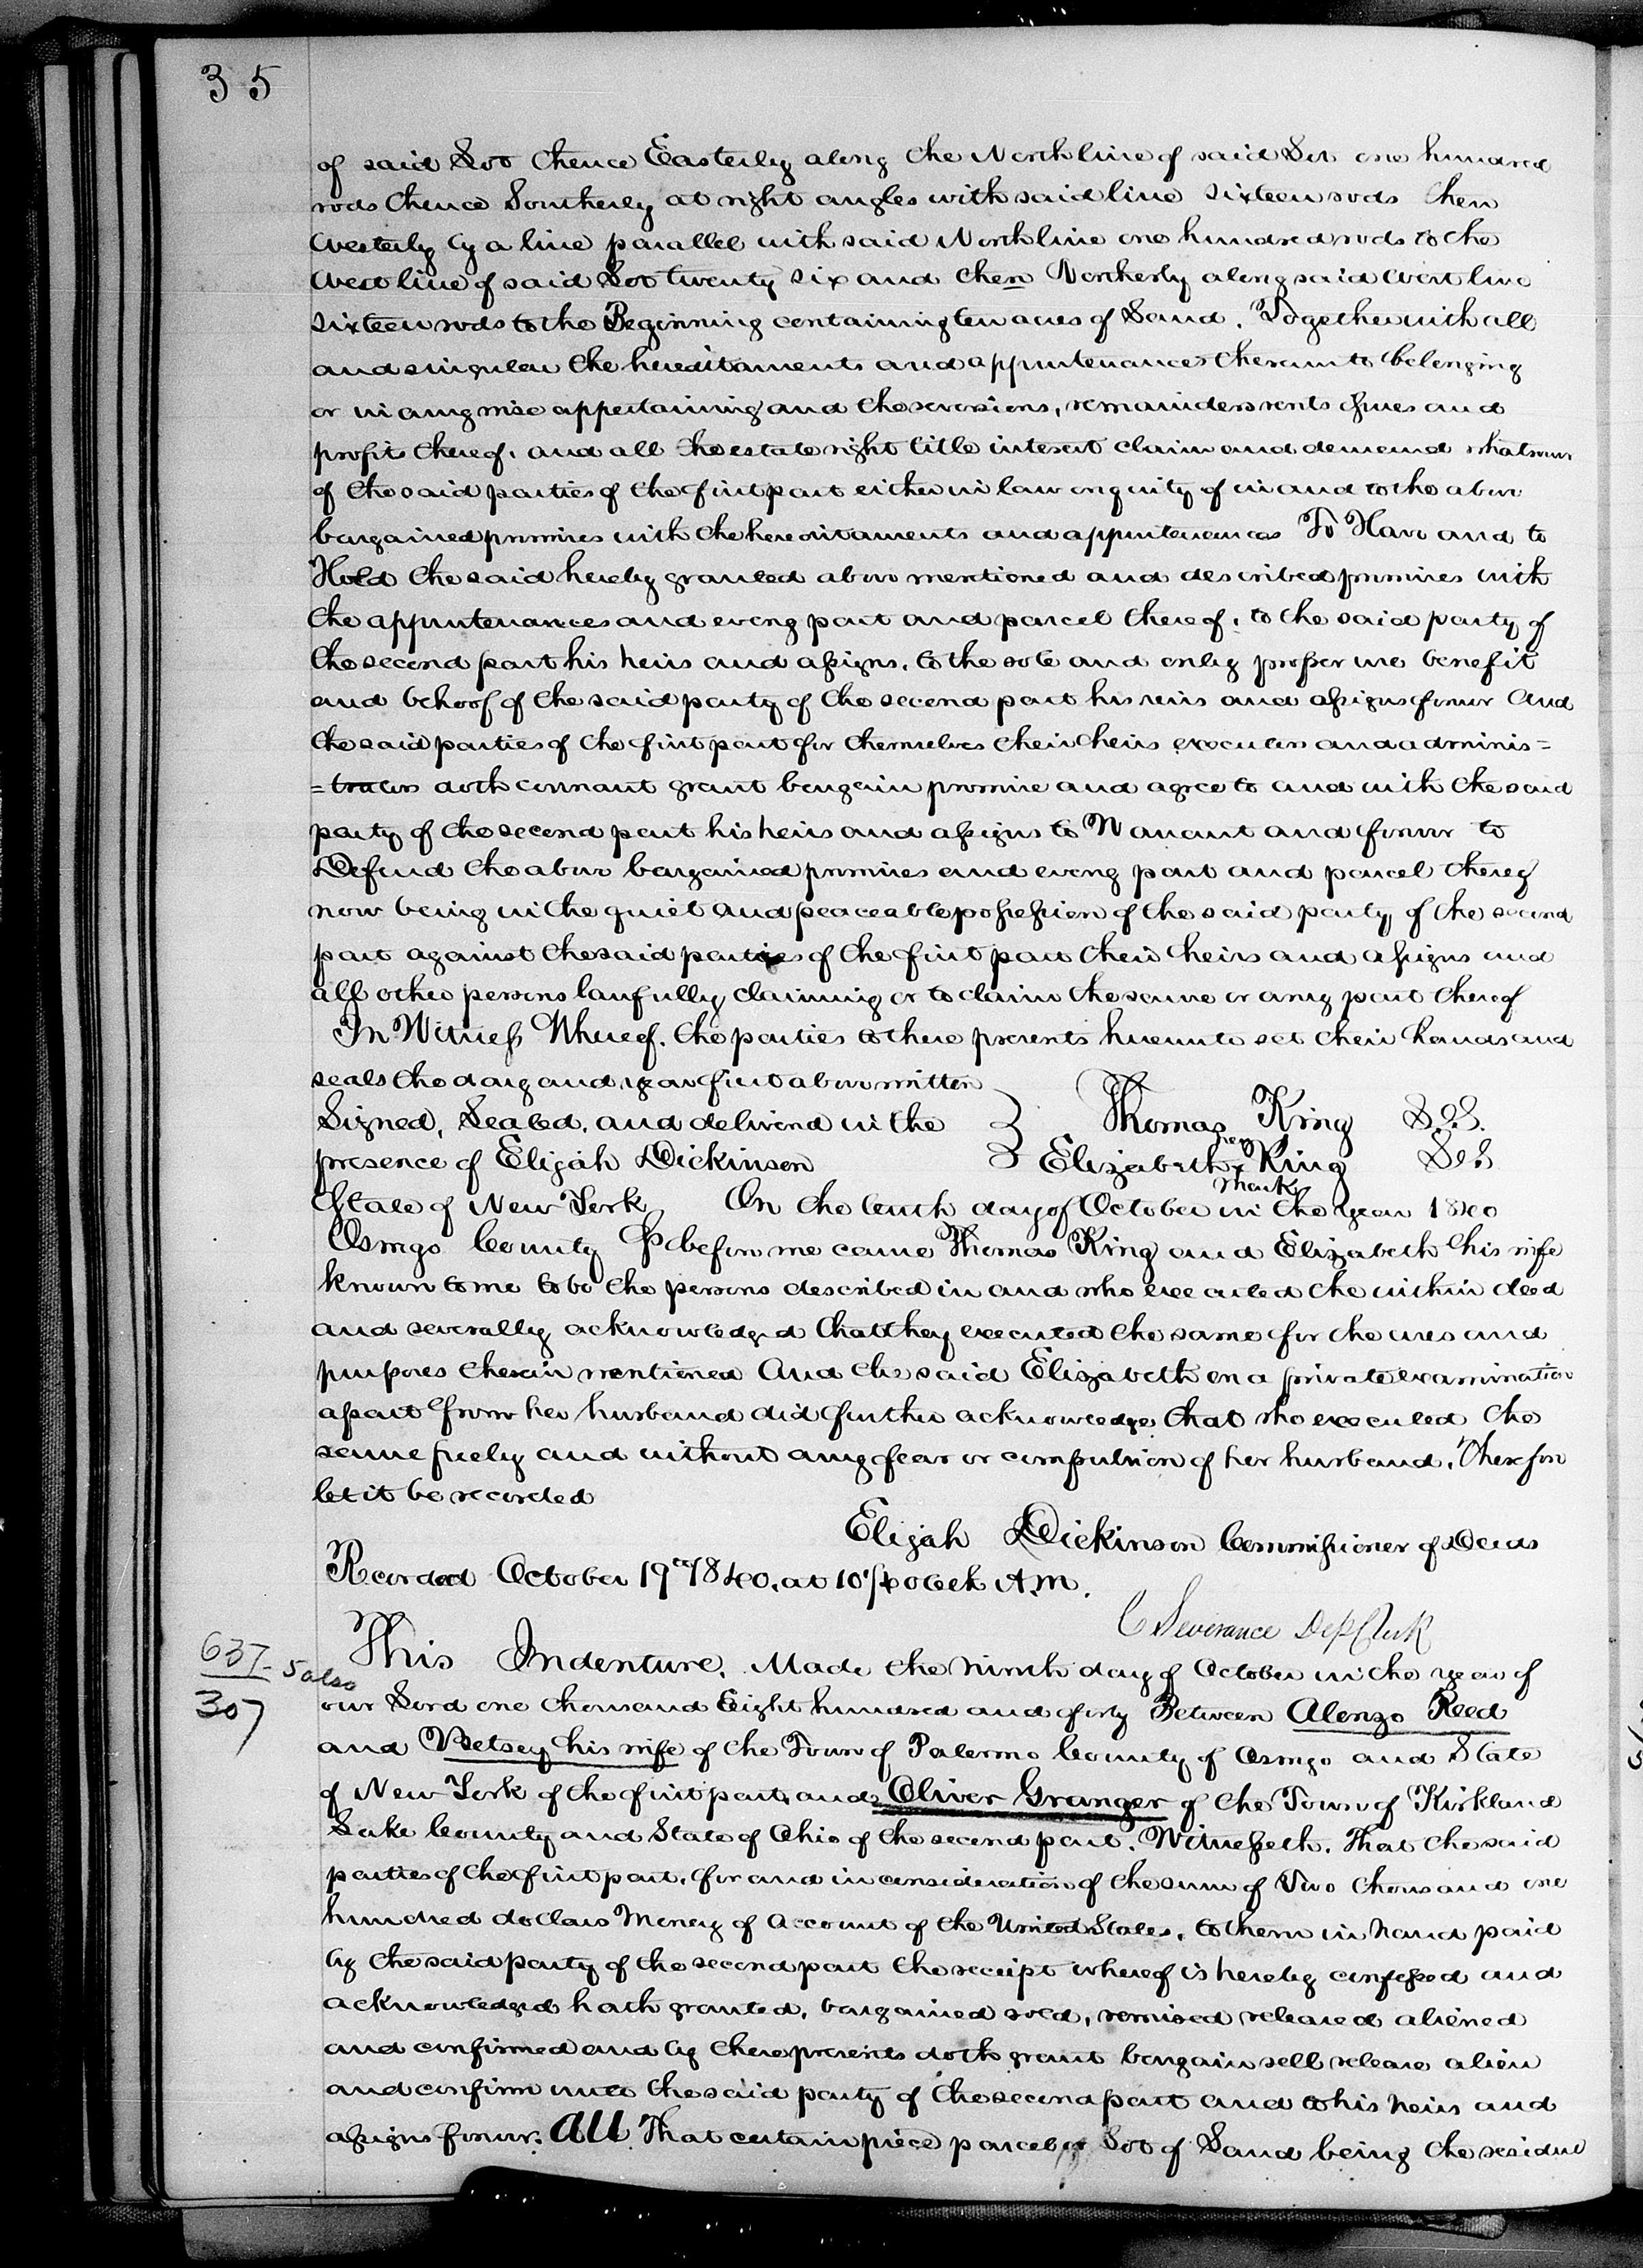 35
of said Lot thence Easterly along the North line of said Lot one hundred
rods thence Southerly at right angles with said line sixteen rods then
Westerly by a line parallel with said North line one hundred rods to the
West line of said Lot twenty six and then Northerly along said West line
sixteen rods to the Beginning containing ten acres of Land. Together with all
and singular the hereditaments and appurtenances thereunto belonging
or in any wise appertaining and the reversions, remainders rents issues and
profits thereof, and all the estate right title interest claim and demand whatsoever
of the said parties of the first part either in law or equity of in and to the above
bargained premises with the hereditaments and appurtenances To Have and to
Hold the said hereby granted above mentioned and described premises with
the appurtenances and every part and parcel thereof, to the said party of
the second part his heirs and assigns, to the sole and only proper use benefit
and behoof of the said party of the second part his heirs and assigns forever And
the said parties of the first part for themselves their heirs executors and adminis=
=trators doth covenant grant bargain promise and agree to and with the said
party of the second part his heirs and assigns to Warrant and forever to
Defend the above bargained premises and every part and parcel thereof
now being in the quiet and peaceable possession of the said party of the second
part against the said parties of the first part their heirs and assigns and
all other persons lawfully claiming or to claim the same or any part thereof
In Witness Whereof. the parties to these presents hereunto set their hands and
seals the day and year first above written
Signed, Sealed, and delivered in the } Thomas King L.S.
presence of Elijah Dickinson } Elizabeth her x mark King L.S.
State of New York On the tenth day of October in the year 1840
Oswego County Ss before me came Thomas King and Elizabeth his wife
known to me to be the persons described in and who executed the within deed
and severally acknowledged that they executed the same for the uses and
purposes therein mentioned And the said Elizabeth on a private examination
apart from her husband did further acknowledge that she executed the
same freely and without any fear or compulsion of her husband. Therefore
let it be recorded
Elijah Dickinson Commissioner of Deeds
Recorded October 19th 1840. at 10 1/4 oclock A.M.
C Severance Dep Clerk
637-5 also
307
This Indenture. Made the ninth day of October in the year of
our Lord one thousand Eight hundred and forty Between Alonzo Reed
and Betsey his wife of the Town of Palermo County of Oswego and State
of New York of the first part, and Oliver Granger of the Town of Kirkland
Lake County and State of Ohio of the second part. Witnesseth. That the said
parties of the first part, for and in consideration of the sum of Two thousand one
hundred dollars Money of Account of the United States, to them in hand paid
by the said party of the second part the receipt whereof is hereby confessed and
acknowledged hath granted, bargained sold, remised released aliened
and confirmed and by these presents doth grant bargain sell release alien
and confirm unto the said party of the second part and to his heirs and
assigns forever. All That certain piece parcel or Lot of Land being the residue